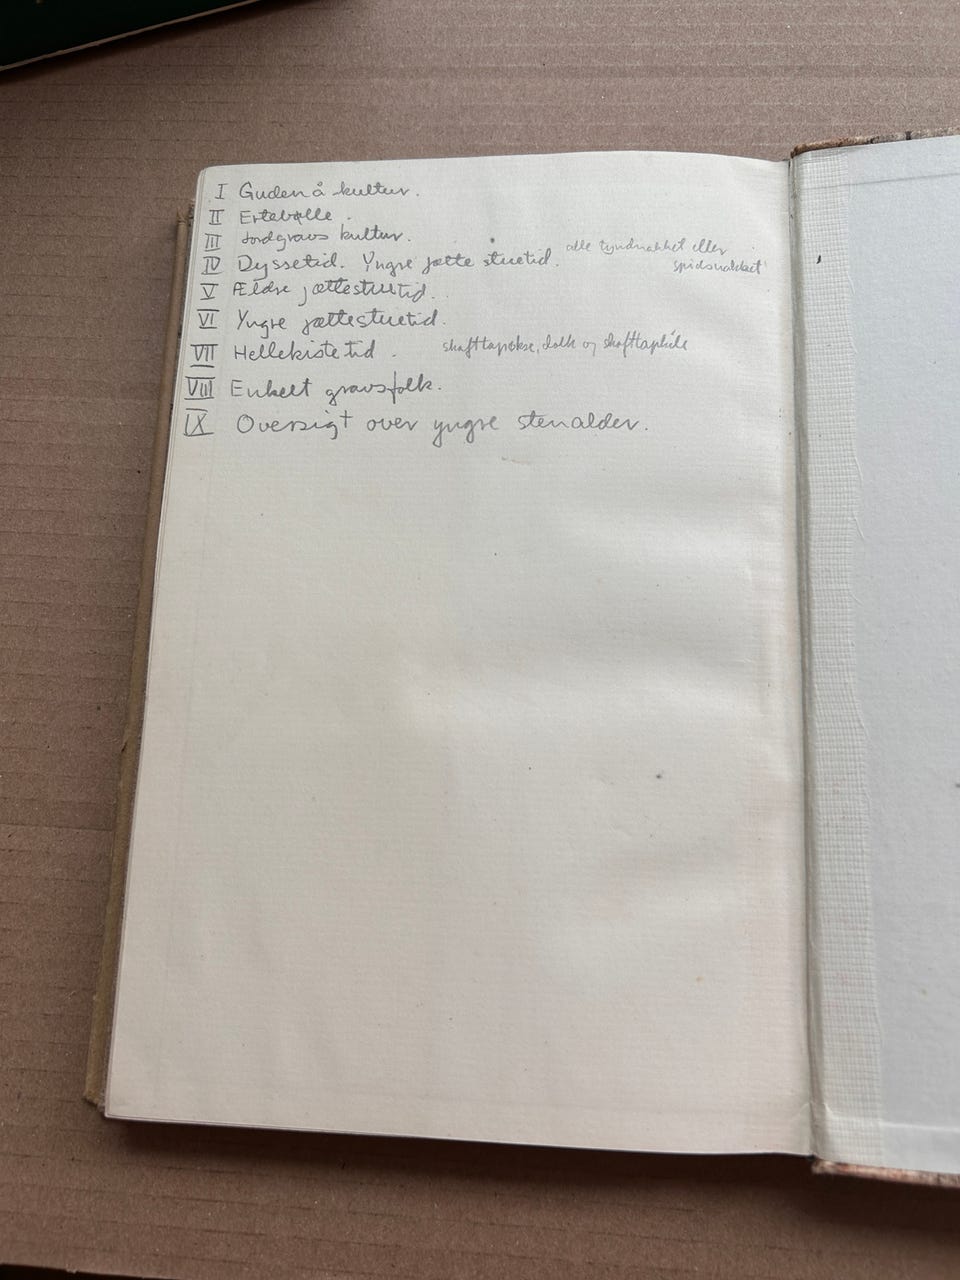 I Gudenå kultur.
II Ertebølle.
III Jordgravs kultur.
IV Dyssetid. Yngre jættestuetid. alle tyndnakket eller
spidsnakket
V Ældre jættestuetid.
VI Yngre jættestuetid.
VII Hellekistetid. skafttapøkse, dolk og skafttapile
VIII Enkelt gravsfolk.
IX Oversigt over yngre stenalder.